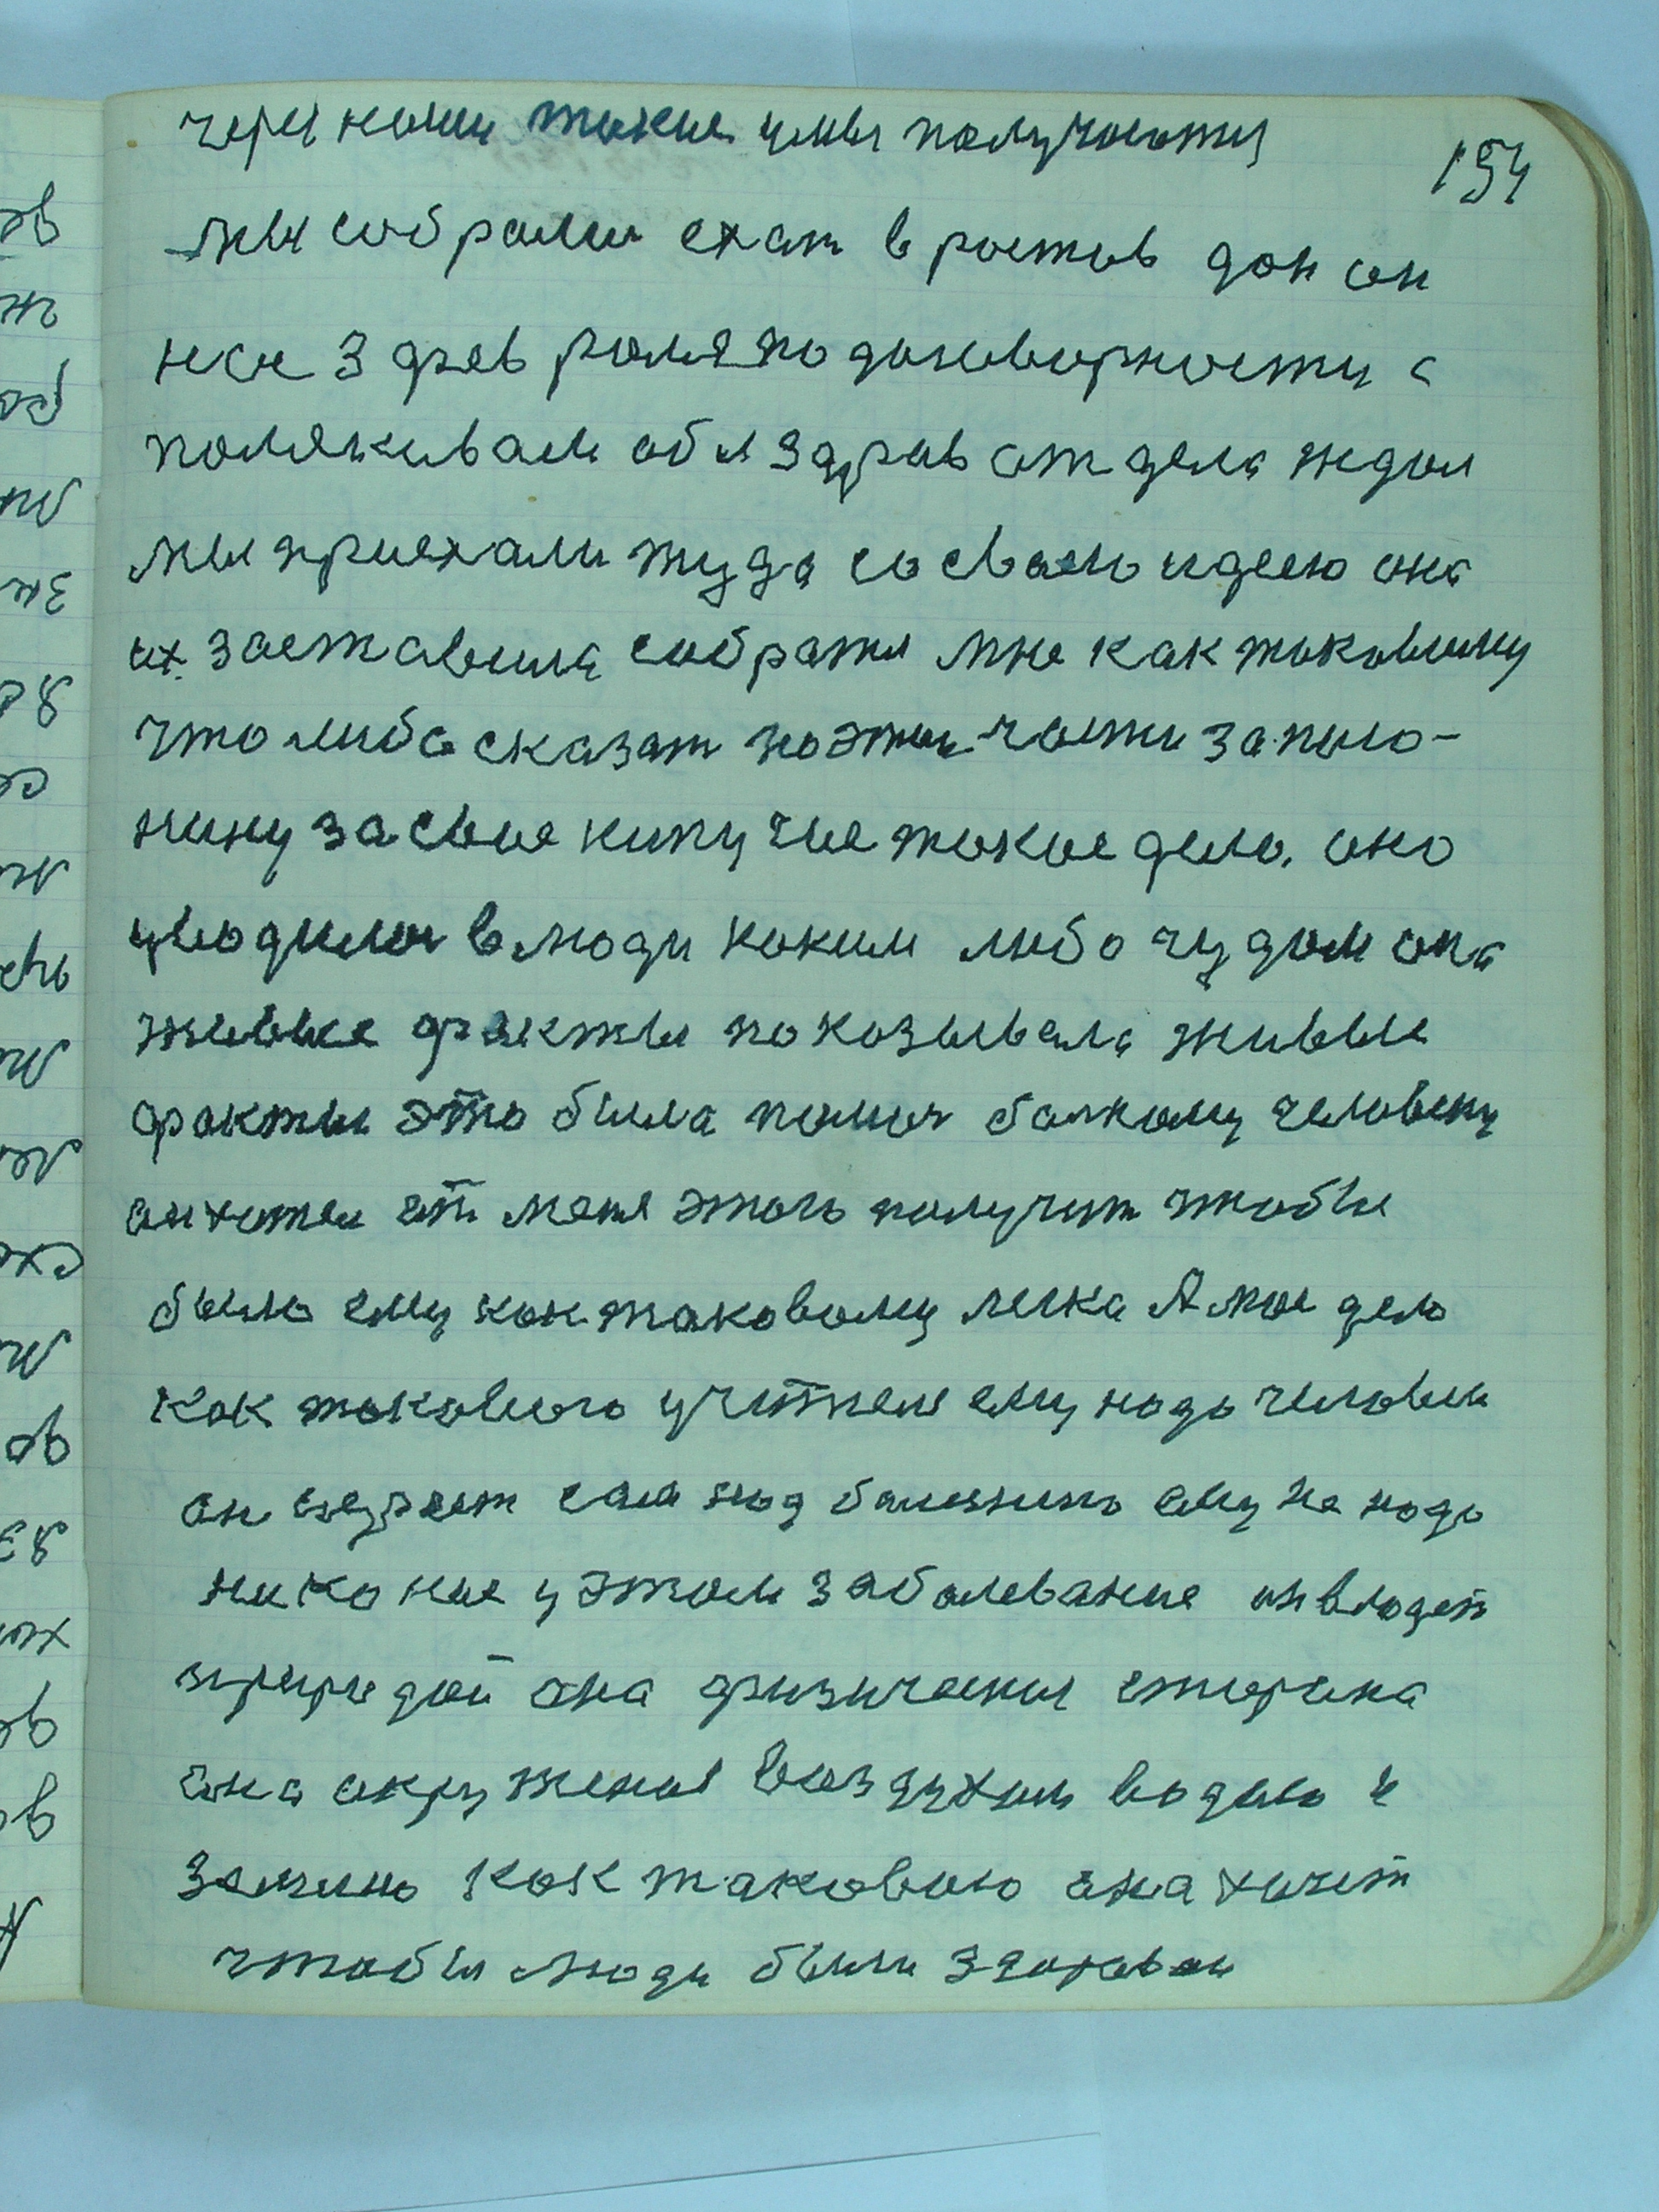 154
через наши такие умы получаются
мы собрали ехат в ростов дон он
нас здрев роля по договорности с
поляживаем обл здрав отдела ждал
мы приехали туда со своею идеею она
их заставила собратя мне как таковому
что либо сказат по этой части за поло-
нину за свое кипучие такое дело. оно
уводилос в люди каким либо чудом она
живые факты показывала живые
факты это была помоч болному человеку
он хотел от меня этого получит чтобы
было ему как таковому легка А мое дело
как такового учителя ему надо человек
он играет сам над болезнию ему не надо
никакие у этом заболевание он владеет
природой она физическия старана
она окружения воздухом водою и
землею как таковою она хочет
чтобы люди были здоровы